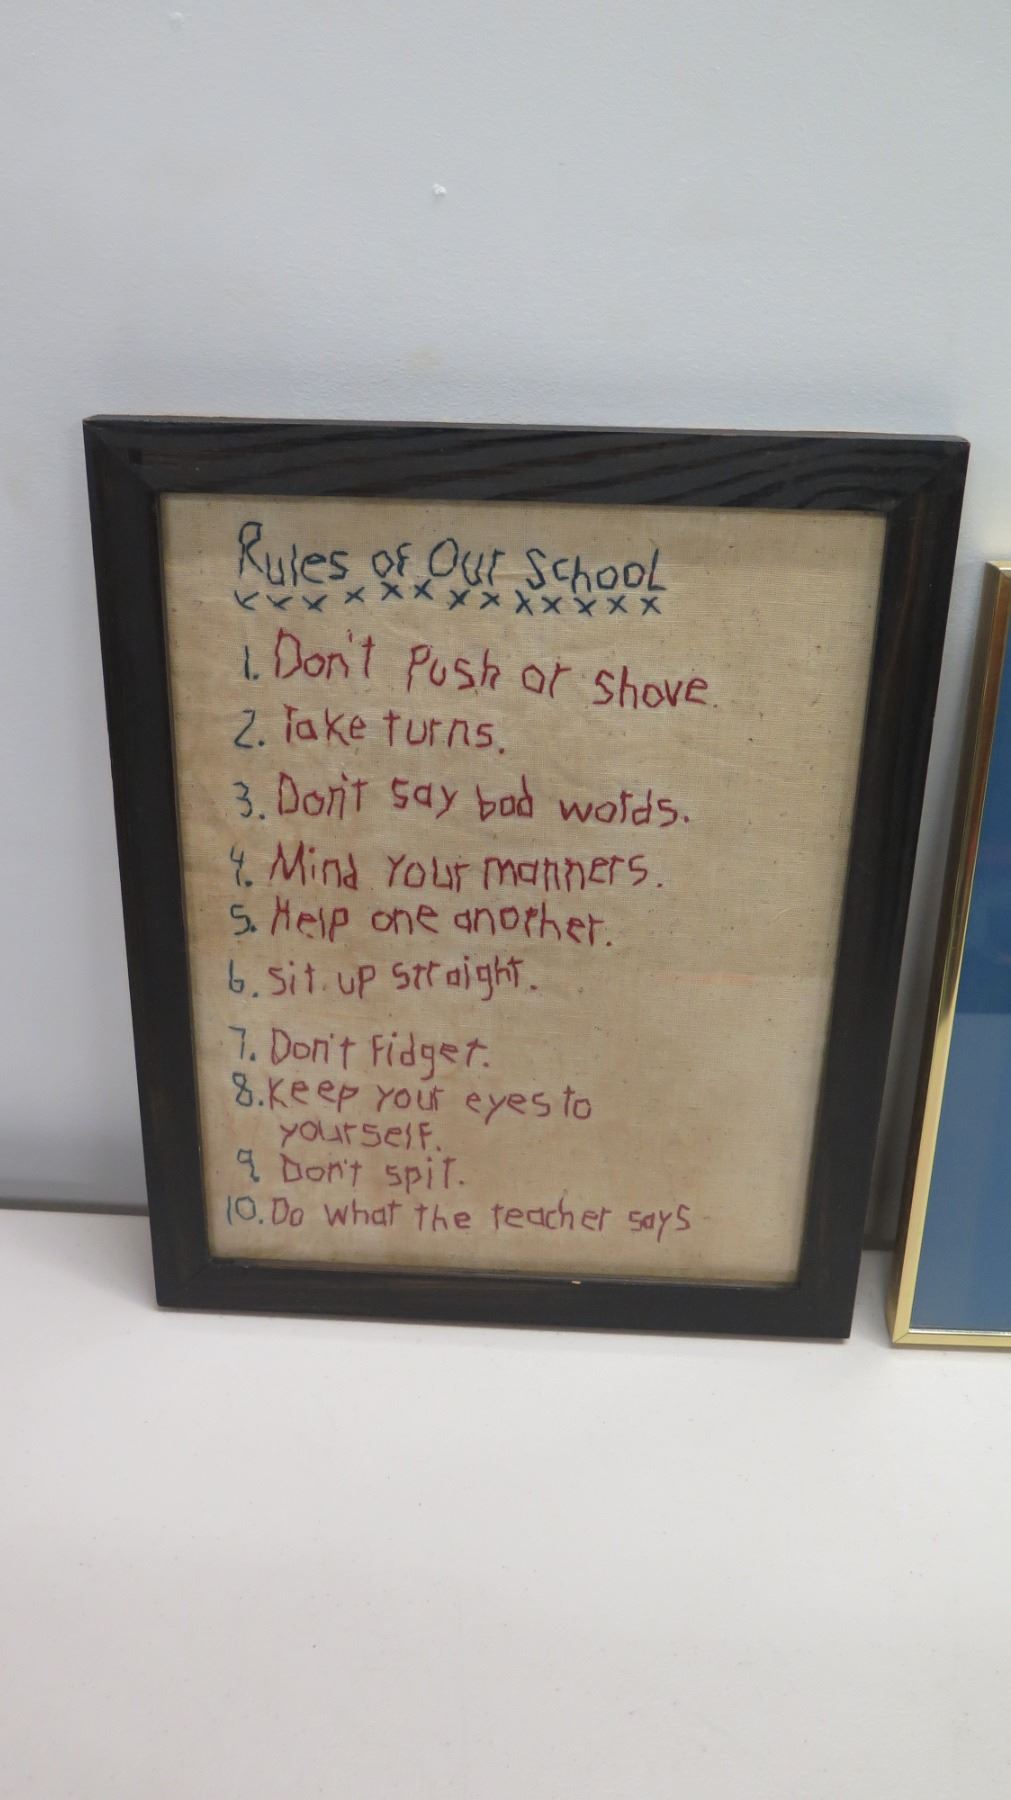 Rules of Our School
x x x x x x x x x x x x x x
1. Don't Push or shove.
2. Take turns.
3. Don't say bad words.
4. Mind Your manners.
5. Help one another.
6. sit up straight.
7. Don't Fidget.
8. Keep your eyes to
yourself.
9 Don't spit.
10. Do what the teacher says